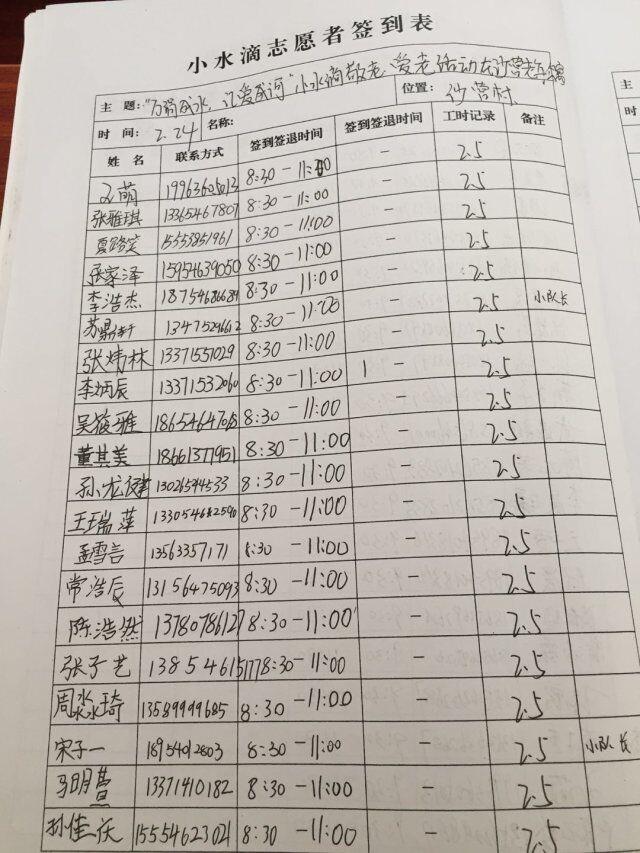 小水滴志愿者签到表
主 题: "万滴成水 汇爱成河" 小水滴敬老 爱老活动
位置: 沙营村
时 间: 2.24 名称:
姓 名 联系方式 签到签退时间 签到签退时间 工时记录 备注
萌 8:30-11:00 - 2.5
张雅琪 13365467807 8:30-11:00 - 2.5
15553851961 8:30-11:00 - 2.5
张家泽 15954639050 8:30-11:00 - 2.5
李浩杰 8:30-11:00 - 2.5
苏鼎轩 8:30-11:00 - 2.5 小队长
张炜林 13371551029 8:30-11:00 - 2.5
李炳辰 13371532060 8:30-11:00 - 2.5
吴筱雅 8:30-11:00 - 2.5
董其美 18661377951 8:30-11:00 - 2.5
孙龙健 8:30-11:00 - 2.5
王瑞萍 8:30-11:00 - 2.5
孟雪言 13563357171 8:30-11:00 - 2.5
常浩辰 13156475093 8:30-11:00 - 2.5
陈浩然 13780786127 8:30-11:00 - 2.5
张子艺 13854615177 8:30-11:00 - 2.5
周淼琦 13589999685 8:30-11:00 - 2.5
宋子一 18954012803 8:30-11:00 - 2.5 小队长
马明萱 13371410182 8:30-11:00 - 2.5
孙佳沃 15554623021 8:30-11:00 - 2.5